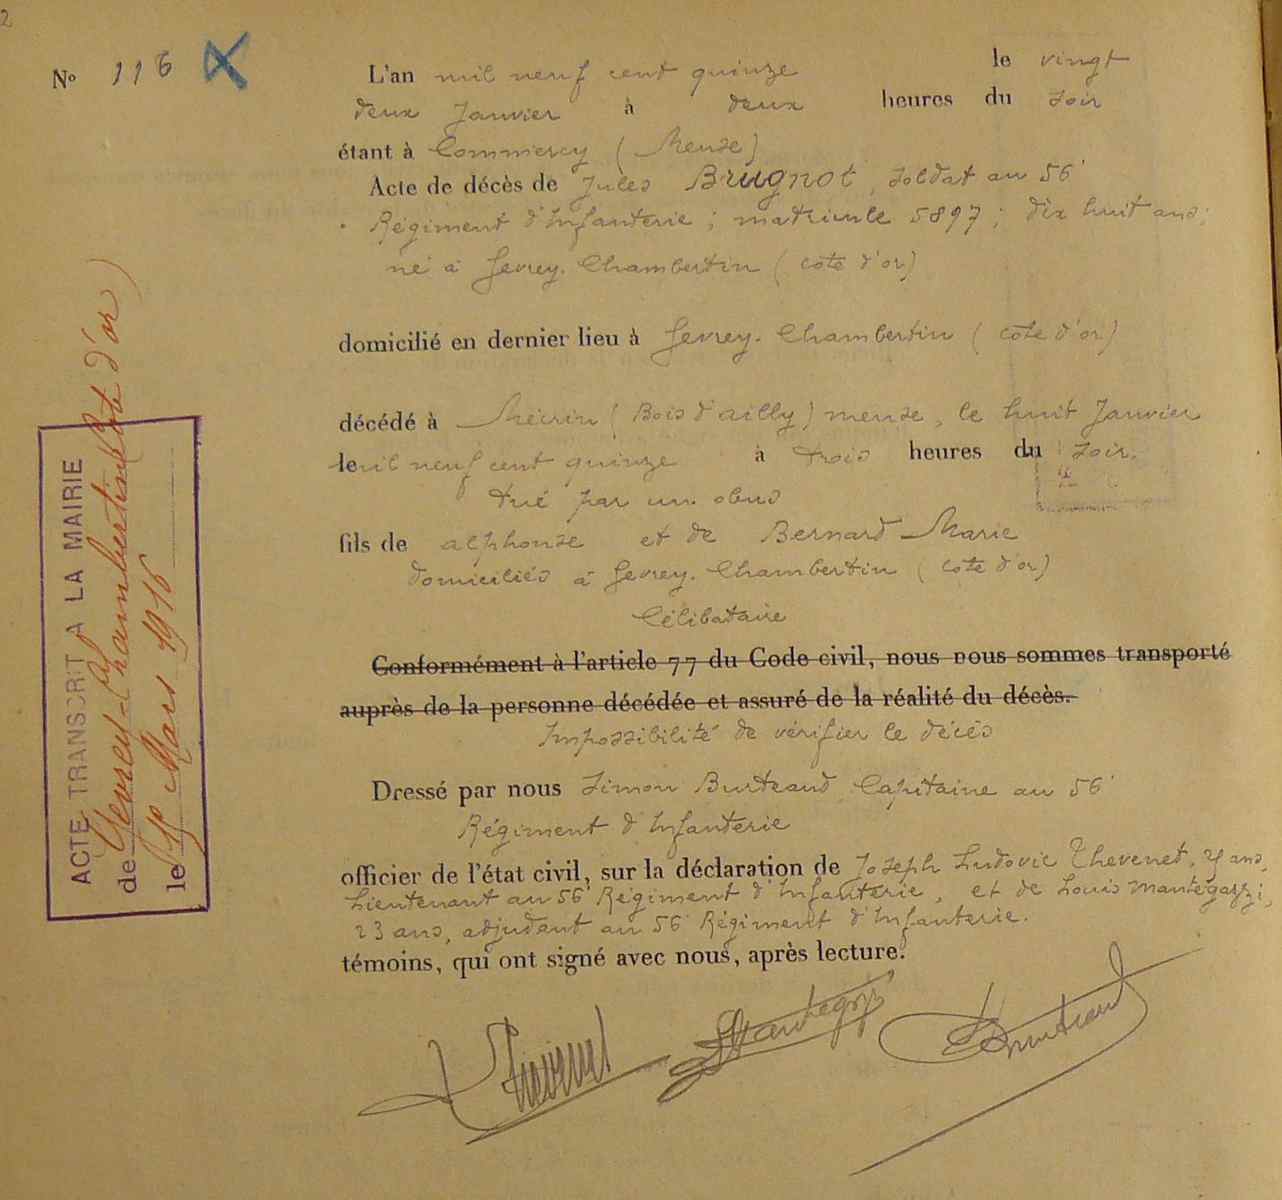 2
N° 116
L'an mil neuf cent quinze le vingt
deux Janvier à deux heures du soir
étant à Commercy (Meuse)
Acte de décès de Jules Brugnot, soldat au 56
Régiment d'Infanterie ; matricule 5897 ; dix huit ans ;
né à Gevrey. Chambertin (côte d'or)
domicilié en dernier lieu à Gevrey. Chambertin (côte d'or)
décédé à Mécrin (Bois d'ailly) meuse, le huit Janvier
mil neuf cent quinze à trois heures du soir.
tué par un obus
fils de alphonse et de Bernard Marie
domiciliés à Gevrey. Chambertin (côte d'or)
Célibataire
Conformément à l'article 77 du Code civil, nous nous sommes transporté
auprès de la personne décédée et assuré de la réalité du décès.
Impossibilité de vérifier le décès
Dressé par nous Simon Burtraud Capitaine au 56
Régiment d'Infanterie
officier de l'état civil, sur la déclaration de Joseph Ludovic Thevenet, ans,
Lieutenant au 56 Régiment d'Infanterie, et de Louis Mantegazzi,
23 ans, adjudant au 56 Régiment d'Infanterie.
témoins, qui ont signé avec nous, après lecture.
Thevenet Mantegazzi Burtraud
ACTE TRANSCRIT A LA MAIRIE
de Gevrey-Chambertin (Côte d'or)
le Mars 1916